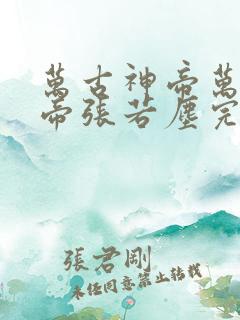 萬古神帝萬
帝張若塵完
張君剛
未经同意禁止转载